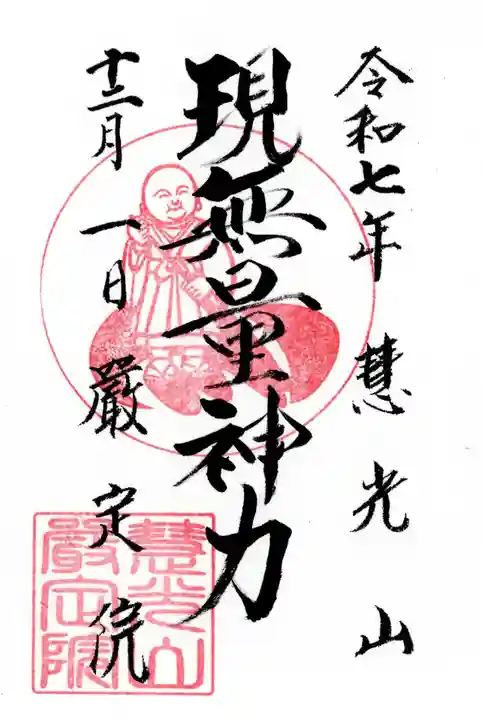 令和七年 慧光山
現無量神力
十二月一日 嚴定院
慧光山
嚴定院